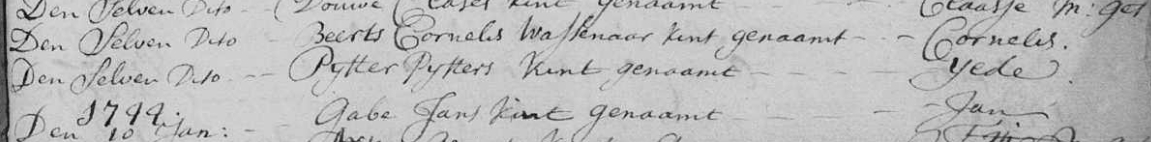 Den Selven Dito - Douwe Clases kint genaamt Claasje
Den Selven Dito - Beerts Cornelis Wassenaar kint genaamt - - Cornelis.
Den Selven Dito - - Pytter Pytters Kint genaamt - - - Yede
1744. Gabe Jans kint genaamt - - Jan
Den 10 Jan: -